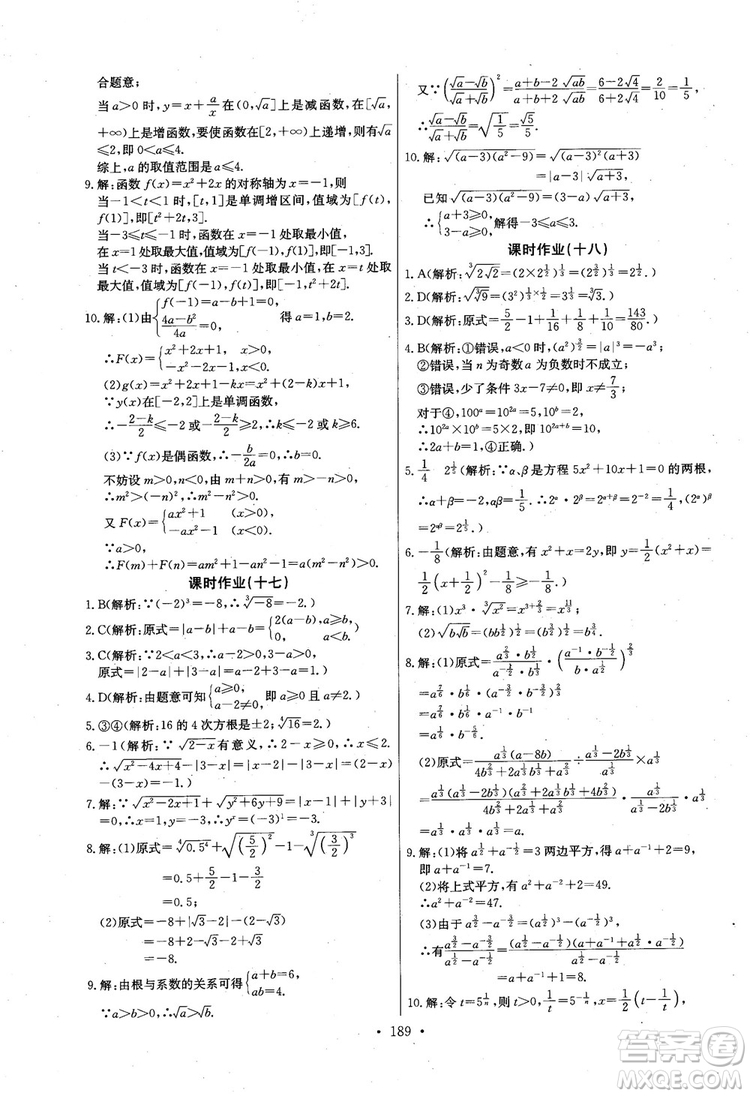 合题意；
当 a>0 时，y=x+a/x 在(0,√a]上是减函数，在[√a,
+∞)上是增函数，要使函数在[2,+∞)上递增，则有√a
≤2，即 0<a≤4.
综上，a 的取值范围是 a≤4.
9. 解：函数 f(x)=x²+2x 的对称轴为 x=-1，则
当-1<t<1 时，[t,1]是单调增区间，值域为[f(t),
f(1)]，即[t²+2t,3].
当-3≤t≤-1 时，函数在 x=-1 处取最小值，
在 x=1 处取最大值，值域为[f(-1),f(1)]，即[-1,3].
当 t<-3 时，函数在 x=-1 处取最小值，在 x=t 处取
最大值，值域为[f(-1),f(t)]，即[-1,t²+2t].
10. 解：(1)由{f(-1)=a-b+1=0, (4a-b²)/4a=0, 得 a=1,b=2.
∴F(x)={x²+2x+1, x>0, -x²-2x-1, x<0.
(2)g(x)=x²+2x+1-kx=x²+(2-k)x+1,
∵y(x)在[-2,2]上是单调函数，
∴-(2-k)/2≤-2 或-(2-k)/2≥2，∴k≤-2 或 k≥6.
(3)∵f(x)是偶函数，∴-b/2a=0，∴b=0.
不妨设 m>0,n<0，由 m+n>0，有 m>-n>0,
∴m²>(-n)²，∴m²>n²，∴m²-n²>0.
又 F(x)={ax²+1 (x>0), -ax²-1 (x<0).
∵a>0,
∴F(m)+F(n)=am²+1-an²-1=a(m²-n²)>0.
课时作业(十七)
1. B(解析：∵(-2)³=-8，∴³√-8=-2.)
2. C(解析：原式=|a-b|+a-b={2(a-b), a≥b, 0, a<b.)
3. C(解析：∵2<a<3，∴a-2>0，a-3<0，
原式=|2-a|+|3-a|=a-2+3-a=1.)
4. D(解析：由题意可知{a≥0, a-2≠0, ∴a≥0 且 a≠2.)
5. ③④(解析：16 的 4 次方根是±2；⁴√16=2.)
6. -1(解析：∵√2-x有意义，∴2-x≥0，∴x≤2.
∴√x²-4x+4-|3-x|=|x-2|-|3-x|=(2-x)
-(3-x)=-1.)
7. 解：∵√x²-2x+1+√y²+6y+9=|x-1|+|y+3|
=0，∴x=1,y=-3，∴yˣ=(-3)¹=-3.
8. 解：(1)原式=⁴√0.5⁴+√(5/2)²-1-³√(3/2)³
=0.5+5/2-1-3/2
=0.5.
(2)原式=-8+|√3-2|-(2-√3)
=-8+2-√3-2+√3
=-8.
9. 解：由根与系数的关系可得{a+b=6, ab=4.
∵a>b>0，∴√a>√b，
又∵((√a-√b)/(√a+√b))²=(a+b-2√ab)/(a+b+2√ab)=(6-2√4)/(6+2√4)=2/10=1/5,
∴(√a-√b)/(√a+√b)=√1/5=√5/5.
10. 解：√(a-3)(a²-9)=√(a-3)²(a+3)
=|a-3|√a+3,
已知√(a-3)(a²-9)=(3-a)√a+3,
∴{a+3≥0, 3-a≥0, 解得-3≤a≤3.
课时作业(十八)
1. A(解析：³√2√2=(2×2^½)^⅓=(2^(3/2))^⅓=2^½=√2.)
2. D(解析：⁶√9=(3²)^(1/6)=3^⅓=³√3.)
3. D(解析：原式=5/2-1+1/16+1/8+1/10=143/80.)
4. B(解析：①错误，a<0 时，(a²)^(3/2)=|a|³=-a³；
②错误，当 n 为奇数 a 为负数时不成立；
③错误，少了条件 3x-7≠0，即 x≠7/3；
对于④，100ᵃ=10²ᵃ=5，10ᵇ=2,
∴10²ᵃ×10ᵇ=5×2=10，即 10²ᵃ⁺ᵇ=10.
∴2a+b=1，④正确.)
5. 1/4 2^(1/5)(解析：∵α、β 是方程 5x²+10x+1=0 的两根，
∴α+β=-2，αβ=1/5，∴2^α·2^β=2^(α+β)=2⁻²=1/4，(2^α)^β
=2^(αβ)=2^(1/5).)
6. -1/8(解析：由题意，有 x²+x=2y，即 y=1/2(x²+x)=
1/2(x+1/2)²-1/8≥-1/8，∴y 的最小值为-1/8.)
7. 解：(1)x³·³√x²=x^(3+2/3)=x^(11/3)
(2)√b√b=(bb^½)^½=(b^(3/2))^½=b^¾.
8. 解：(1)原式=(a^(2/3)·b^½·a^½·b^⅓)/(a^(1/6)·b^(5/6))
=a^(7/6)·b^(5/6)·a^(-1/6)·b^(-5/6)
=a^(7/6-1/6)·b^(5/6-5/6)
=a.
(2)原式=(a^⅓(a-8b))/(4b^⅔+2a^⅓b^⅓+a^⅔)÷(a^⅓-2b^⅓)/a^⅓·a^⅓
=(a^⅓(a^⅓-2b^⅓)(a^⅔+2a^⅓b^⅓+4b^⅔))/(4b^⅔+2a^⅓b^⅓+a^⅔)·a^⅓/(a^⅓-2b^⅓)·a^⅓
=a^⅓·a^⅓·a^⅓=a.
9. 解：(1)将 a^½+a^(-½)=3 两边平方，得 a+a⁻¹+2=9,
即 a+a⁻¹=7.
(2)将上式平方，有 a²+a⁻²+2=49.
∴a²+a⁻²=47.
(3)由于 a^(3/2)-a^(-3/2)=(a^½)³-(a^(-½))³,
∴有(a^(3/2)-a^(-3/2))/(a^½-a^(-½))=((a^½-a^(-½))(a+a⁻¹+a^½·a^(-½)))/(a^½-a^(-½))
=a+a⁻¹+1=8.
10. 解：令 t=5^(1/n)，则 t>0，1/t=5^(-1/n)，x=1/2(t-1/t),
• 189 •
答案圈
MXQE.COM